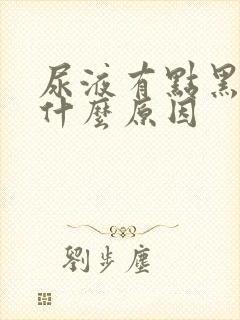 尿液有點黑
什麼原因
劉步塵